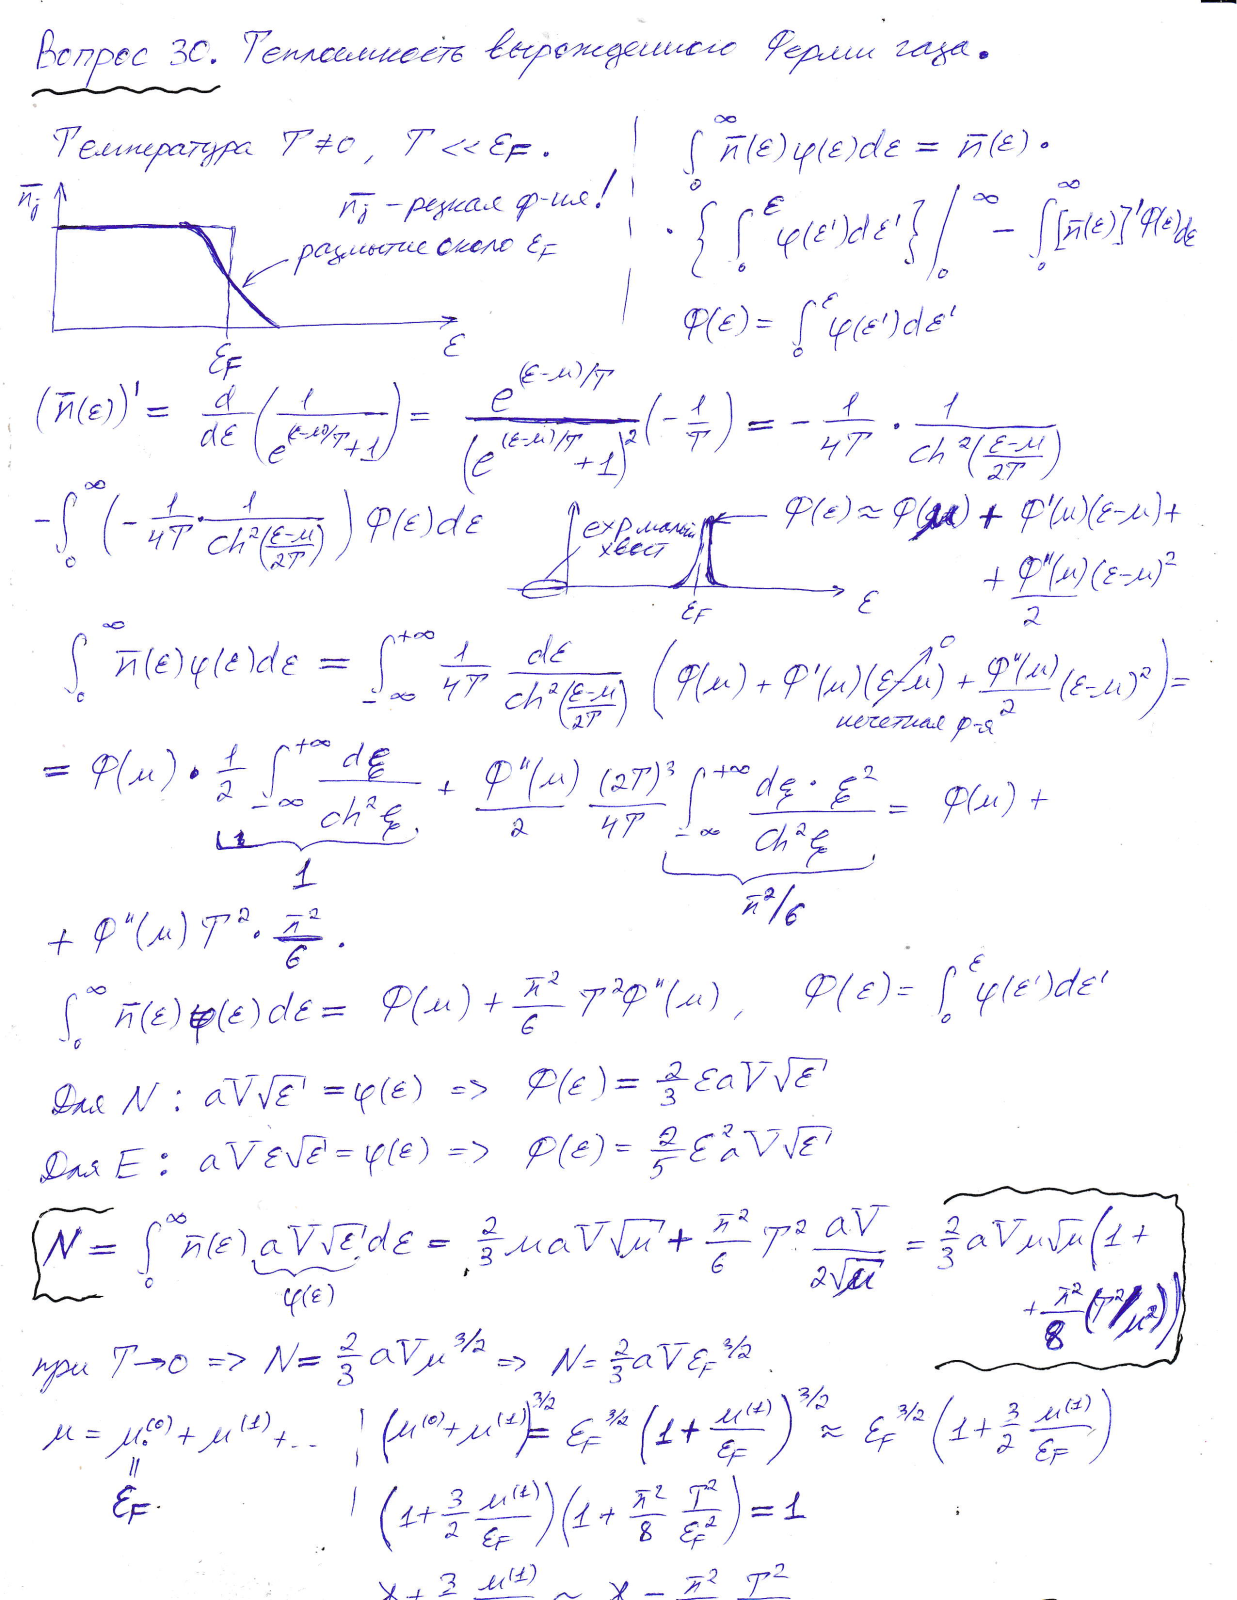 Вопрос 30. Теплоемкость вырожденного Ферми газа.
Температура T≠0, T << εF.
n̄j
n̄j – резкая ф-ия!
размытие около εF
εF
ε
∫₀^∞ n̄(ε)φ(ε)dε = n̄(ε)·
·{∫₀^ε φ(ε')dε'}|₀^∞ − ∫₀^∞ [n̄(ε)]'Φ(ε)dε
Φ(ε) = ∫₀^ε φ(ε')dε'
(n̄(ε))' = d/dε (1/(e^((ε-μ)/T)+1)) = e^((ε-μ)/T)/(e^((ε-μ)/T)+1)² (−1/T) = −1/4T · 1/ch²((ε-μ)/2T)
−∫₀^∞ (−1/4T · 1/ch²((ε-μ)/2T)) Φ(ε)dε
exp малый
хвост
εF
ε
Φ(ε) ≈ Φ(μ) + Φ'(μ)(ε-μ) +
+ Φ''(μ)/2 (ε-μ)²
∫₀^∞ n̄(ε)φ(ε)dε = ∫₋∞^+∞ 1/4T dε/ch²((ε-μ)/2T) (Φ(μ) + Φ'(μ)(ε-μ)→0 + Φ''(μ)/2 (ε-μ)²) =
нечетная ф-я
= Φ(μ)·1/2 ∫₋∞^+∞ dξ/ch²ξ + Φ''(μ)/2 (2T)³/4T ∫₋∞^+∞ dξ·ξ²/ch²ξ = Φ(μ) +
1
π²/6
+ Φ''(μ) T²·π²/6.
∫₀^∞ n̄(ε)φ(ε)dε = Φ(μ) + π²/6 T²Φ''(μ), Φ(ε) = ∫₀^ε φ(ε')dε'
Для N: aV√ε = φ(ε) => Φ(ε) = 2/3 εaV√ε
Для E: aVε√ε = φ(ε) => Φ(ε) = 2/5 ε²aV√ε
N = ∫₀^∞ n̄(ε) aV√ε dε = 2/3 μaV√μ + π²/6 T² aV/2√μ = 2/3 aVμ√μ (1 +
φ(ε)
+ π²/8 (T²/μ²))
при T→0 => N = 2/3 aVμ^3/2 => N = 2/3 aVεF^3/2
μ = μ₀^(0) + μ^(1) + ...
=
εF.
(μ^(0) + μ^(1))^3/2 = εF^3/2 (1 + μ^(1)/εF)^3/2 ≈ εF^3/2 (1 + 3/2 μ^(1)/εF)
(1 + 3/2 μ^(1)/εF)(1 + π²/8 T²/εF²) = 1